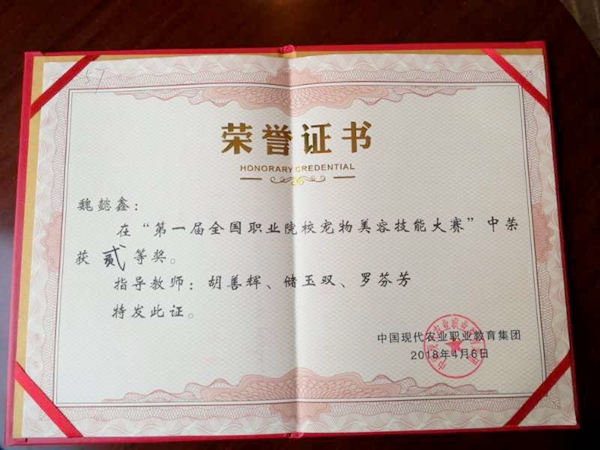 57
荣誉证书
HONORARY CREDENTIAL
魏懿鑫：
在“第一届全国职业院校宠物美容技能大赛”中荣
获贰等奖。
指导教师：胡善辉、储玉双、罗芬芳
特发此证。
中国现代农业职业教育集团
2018年4月6日